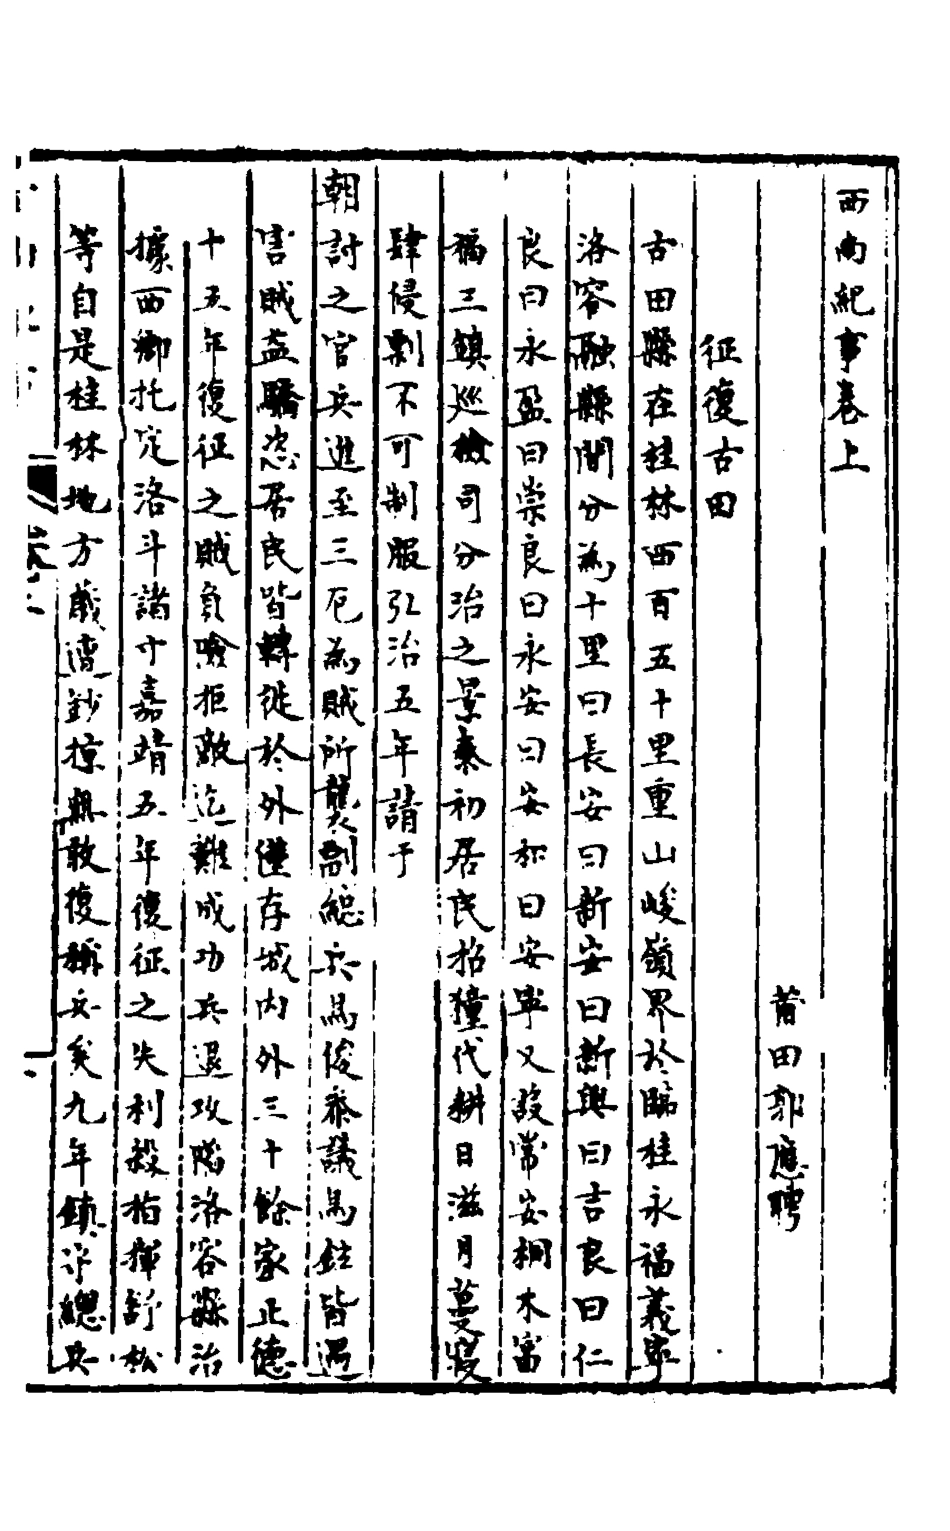 西南紀事卷上
莆田郭應聘
征復古田
古田縣在桂林西百五十里重山峻嶺界於臨桂永福義寧
洛容融縣間分為十里曰長安曰新安曰新興曰吉良曰仁
良曰永盈曰崇良曰永安曰安和曰安寧又設常安桐木富
福三鎮巡檢司分治之景泰初居民招獞代耕日滋月蔓寖
肆侵剽不可制服弘治五年請于
朝討之官兵進至三厄為賊所襲副總兵馬俊參議馬鉉皆遇
害賊益驕恣居民皆轉徙於外僅存城內外三十餘家正德
十五年復征之賊負險拒敵迄難成功兵退攻陷洛容縣治
據西鄉托定洛斗諸寸嘉靖五年復征之失利殺指揮舒松
等自是桂林地方歲遭鈔掠無敢復稱兵矣九年鎮守總兵